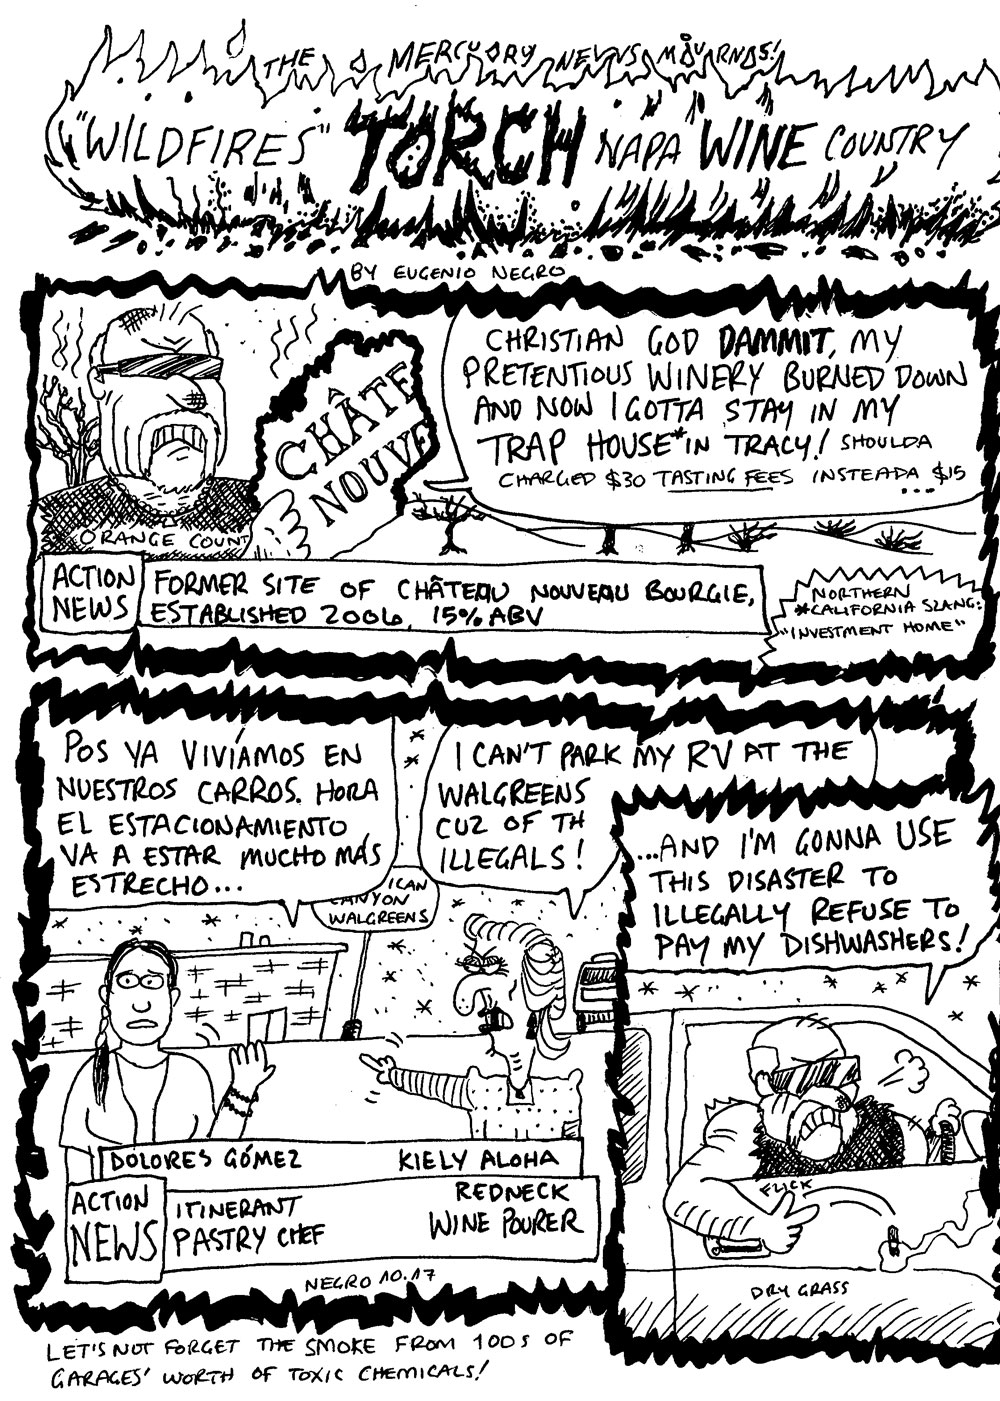 THE MERCUORY NEWS MOURNS!
"WILDFIRES" TORCH NAPA WINE COUNTRY
BY EUGENIO NEGRO
CHRISTIAN GOD DAMMIT, MY
PRETENTIOUS WINERY BURNED DOWN
AND NOW I GOTTA STAY IN MY
TRAP HOUSE* IN TRACY! SHOULDA
CHARGED $30 TASTING FEES INSTEADA $15
...
CHÂTE
NOUVE
ORANGE COUNT
ACTION
NEWS
FORMER SITE OF CHÂTEAU NOUVEAU BOURGIE,
ESTABLISHED 2006, 15% ABV
NORTHERN
*CALIFORNIA SLANG:
"INVESTMENT HOME"
POS YA VIVÍAMOS EN
NUESTROS CARROS. HORA
EL ESTACIONAMIENTO
VA A ESTAR MUCHO MÁS
ESTRECHO...
I CAN'T PARK MY RV AT THE
WALGREENS
CUZ OF TH
ILLEGALS!
ICAN
CANYON
WALGREENS
...AND I'M GONNA USE
THIS DISASTER TO
ILLEGALLY REFUSE TO
PAY MY DISHWASHERS!
DOLORES GÓMEZ
KIELY ALOHA
ACTION
NEWS
ITINERANT
PASTRY CHEF
REDNECK
WINE POURER
FLICK
DRY GRASS
NEGRO 10.17
LET'S NOT FORGET THE SMOKE FROM 100S OF
GARAGES' WORTH OF TOXIC CHEMICALS!